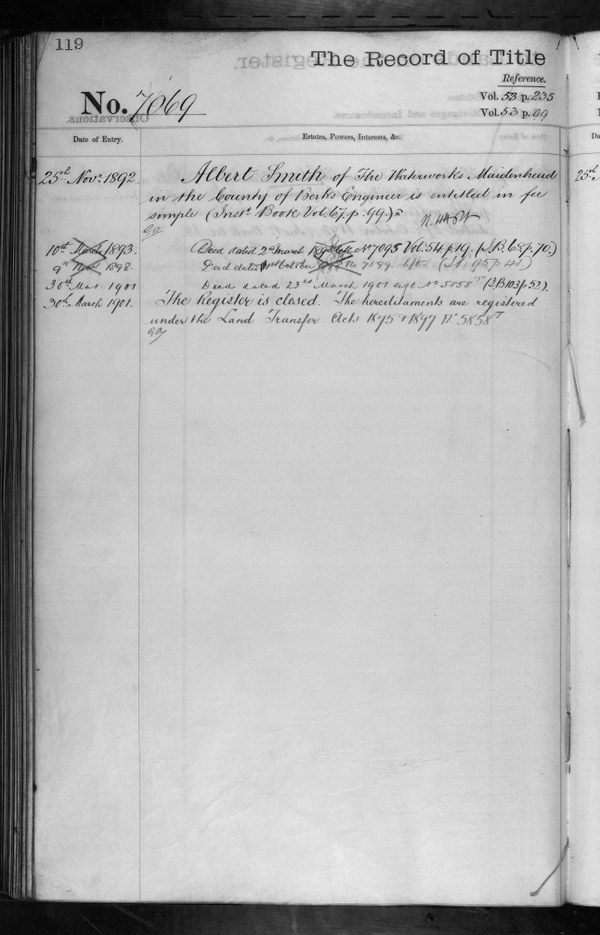 119
The Record of Title
Reference.
No. 7069
Vol. 53 p. 235
Vol. 53 p. 99
Date of Entry.
Estates, Powers, Interests, &c.
25th Novr. 1892
Albert Smith of The Waterworks Maidenhead
in the County of Berks Engineer is entitled in fee
simple (Inst. Book Vol. 67. p. 99)
10th March 1893.
Deed dated 2nd March No 7095 Vol. 54 p. 19.
9th 1898.
Deed dated
30th Mar. 1901
Deed dated 23rd March 1901 No 5858T (I.B. 103 p. 52).
30th March 1901.
The Register is closed. The hereditaments are registered
under the Land Transfer Acts 1875 & 1897 No 5858T
25th